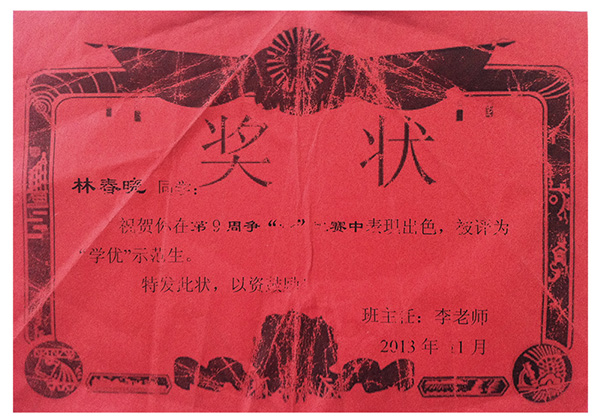 奖状
林春晓 同学:
祝贺你在第9周争“ ” 赛中表现出色,被评为
“学优”示范生。
特发此状,以资鼓励
班主任:李老师
2013年11月